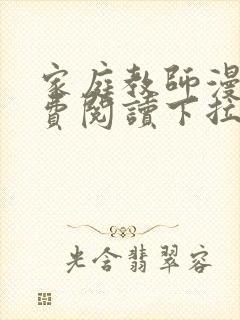 家庭教師漫
費閱讀下拉
光含翡翠容